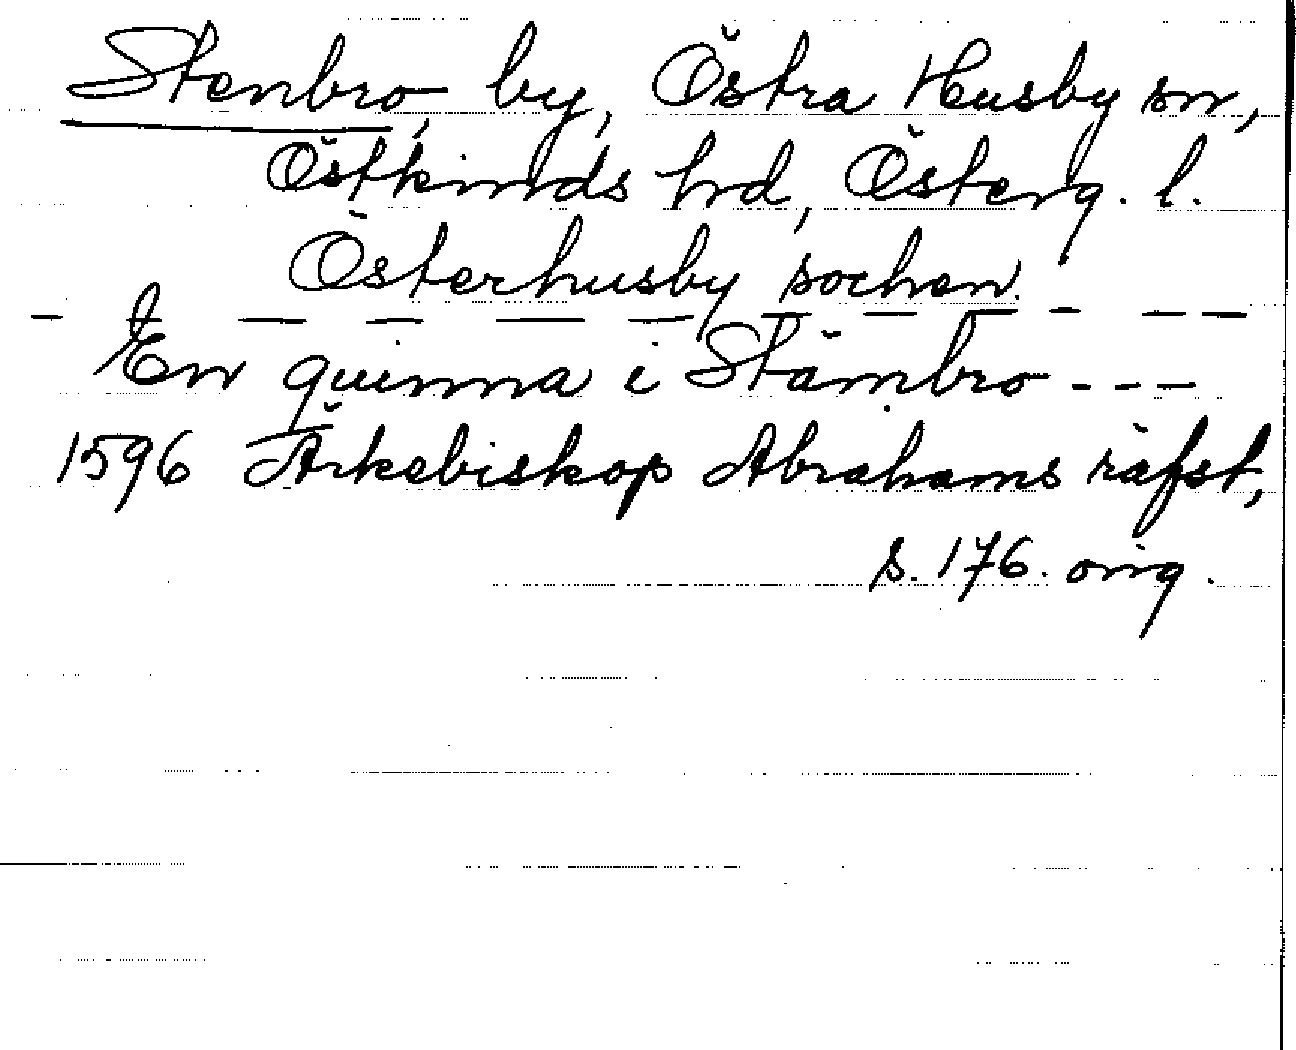 Stenbro, by, Östra Husby sn,
Östkinds hrd, Österg. l.
Österhusby sochen.
- - - - - - - - - - -
En quinna i Stämbro - - -
1596 Ärkebiskop Abrahams räfst,
s. 176. orig.